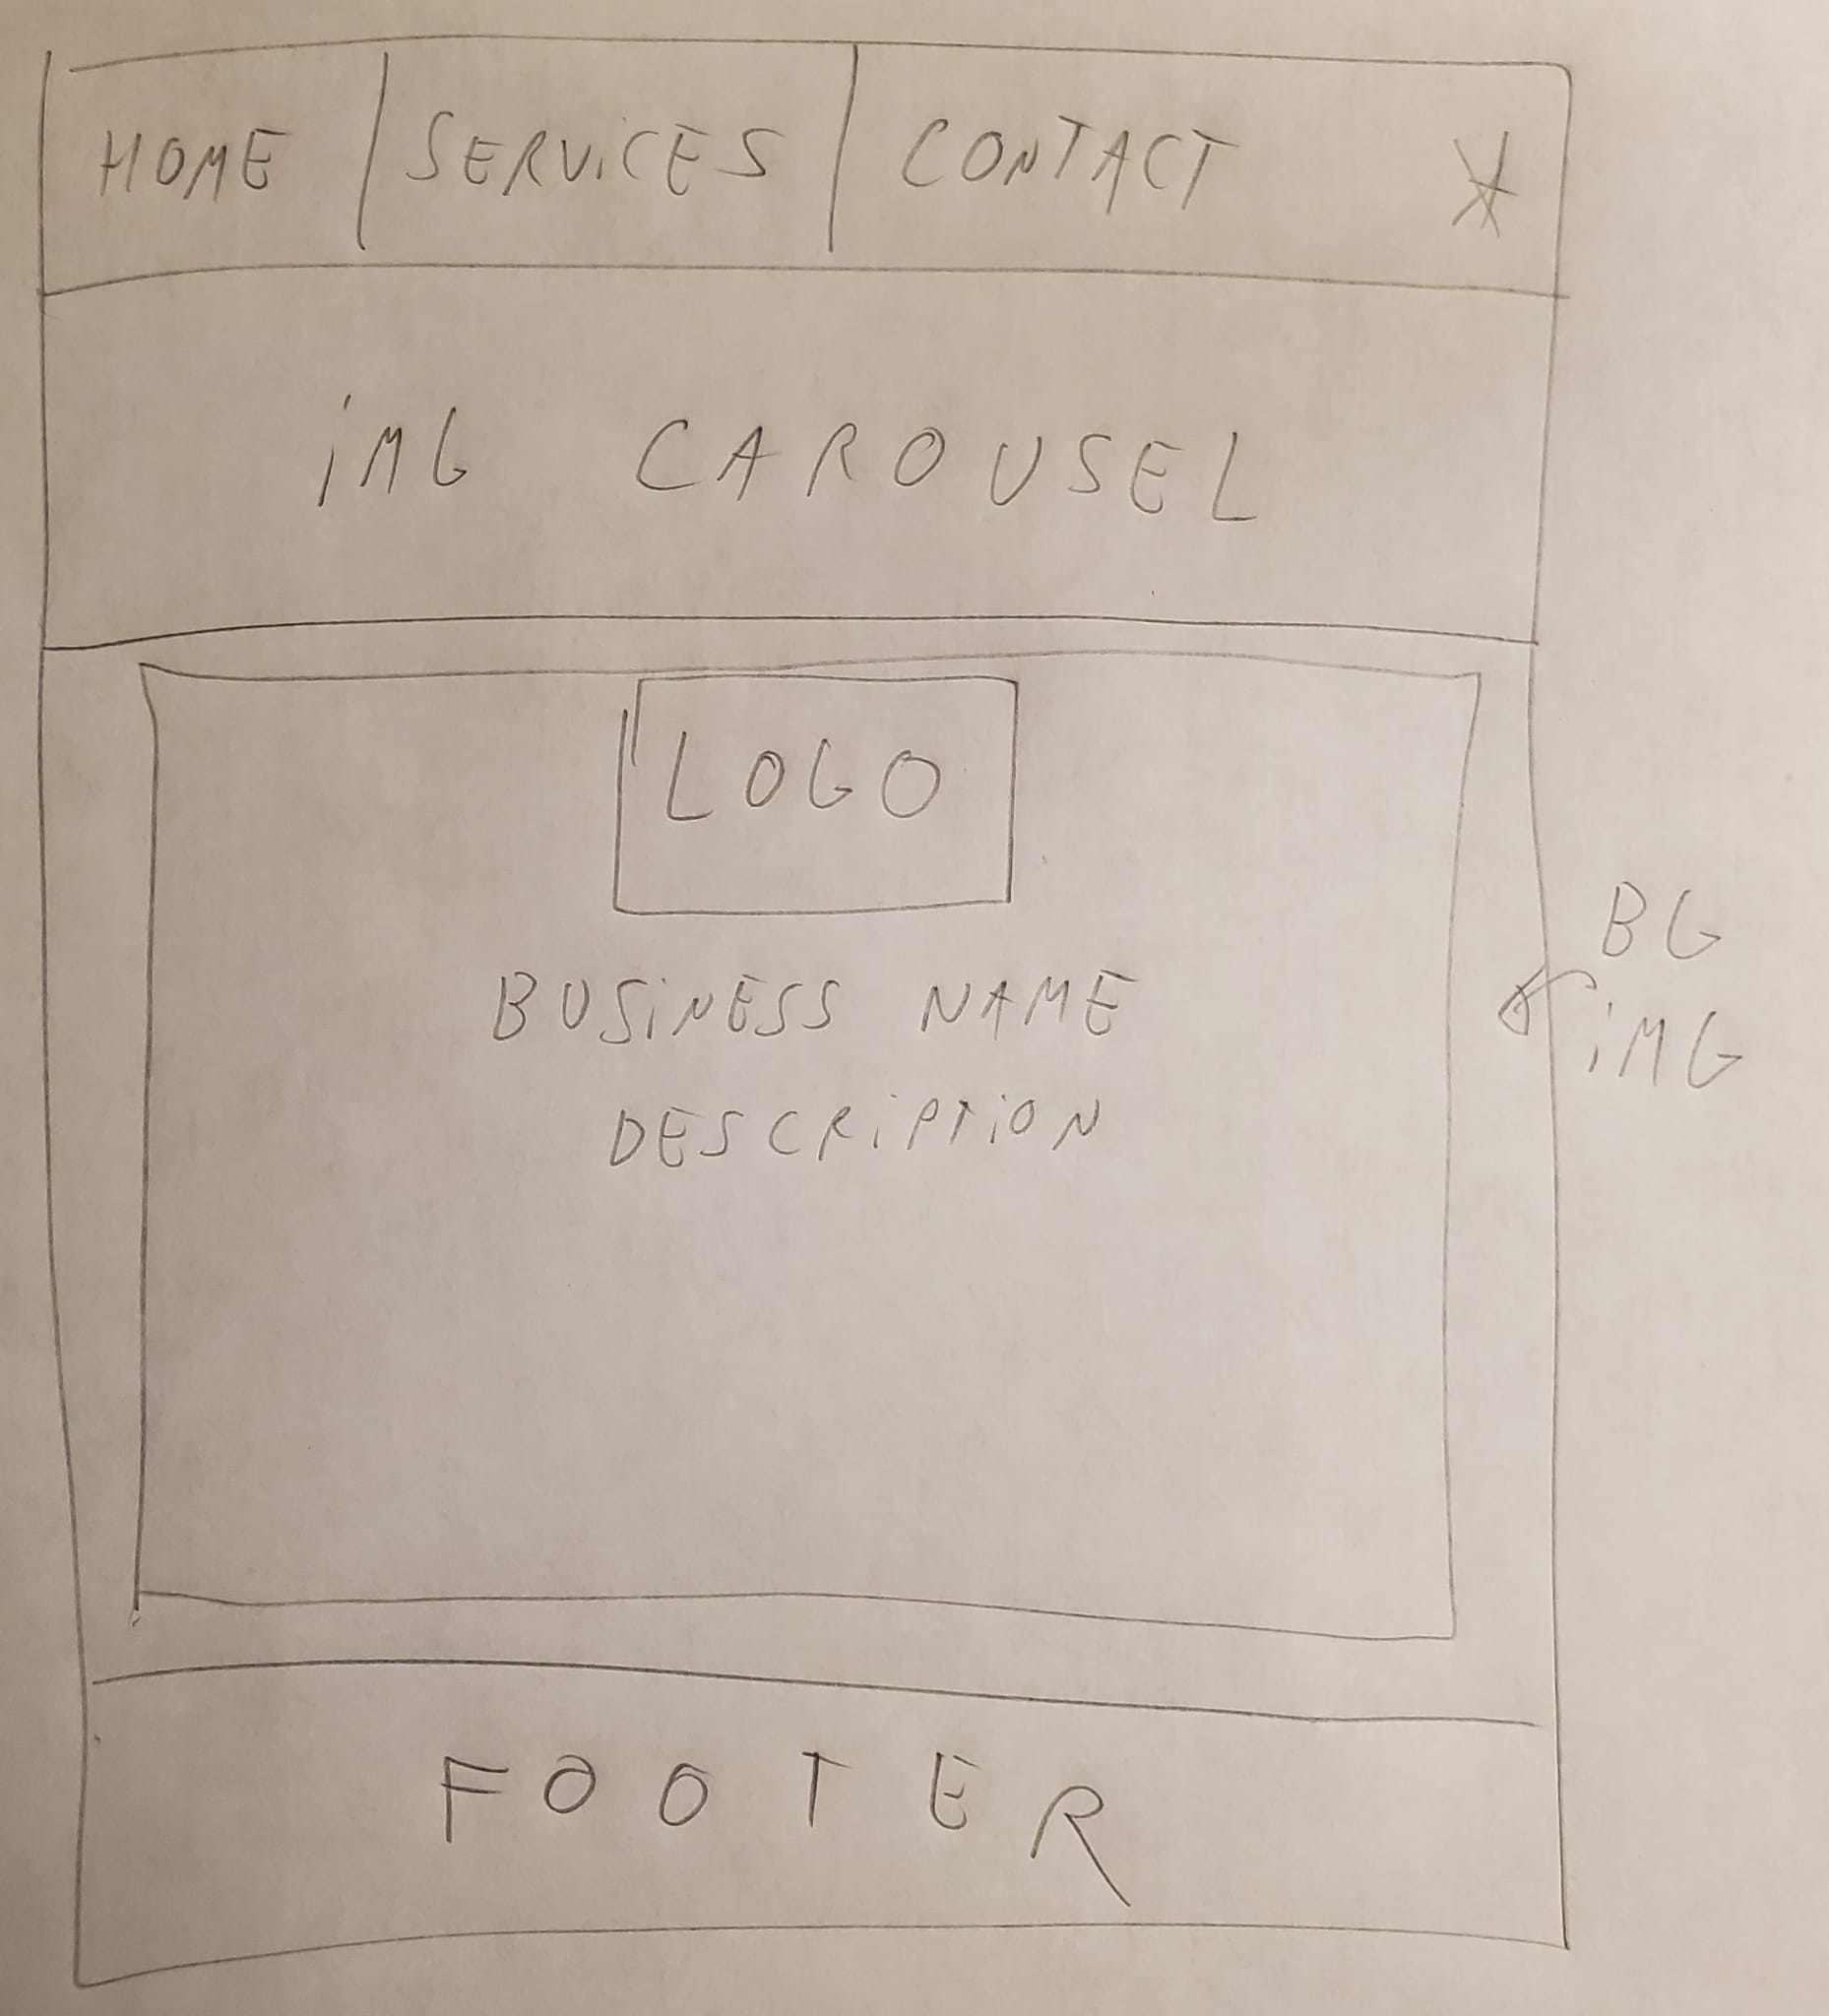 HOME SERViCES CONTACT
iMG CAROUSEL
LOGO
BUSiNESS NAME
DESCRiPTiON
BG
iMG
FOOTER